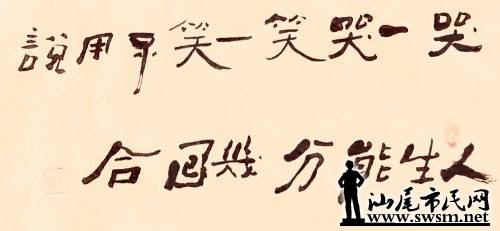 哭一哭笑一笑不用說
人生能分幾回合
汕尾市民网
www.swsm.net